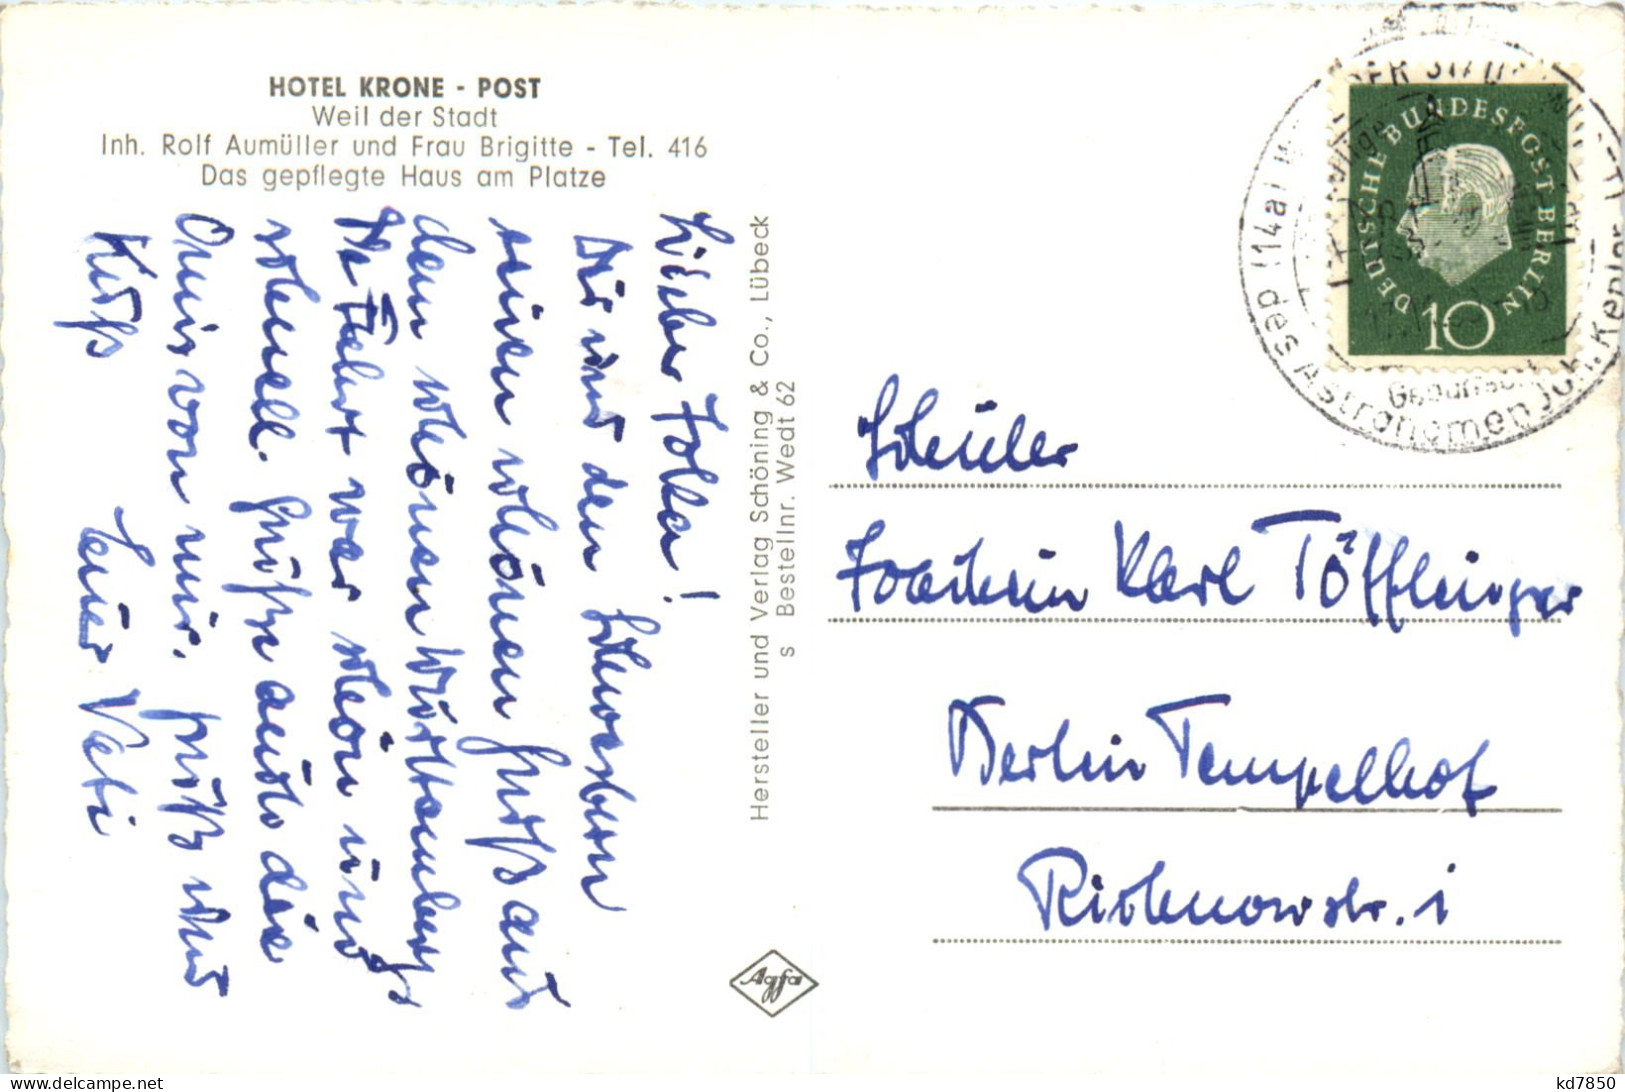 HOTEL KRONE - POST
Weil der Stadt
Inh. Rolf Aumüller und Frau Brigitte - Tel. 416
Das gepflegte Haus am Platze
Lieber Jolka!
Dir und den Schwosbern
einen schönen Gruß aus
dem schönen Württemberg
Die Fahrt war schön und
schnell. Grüße auch die
Omis von mir. Gruß und
Kuß Euer Vati
Hersteller und Verlag Schöning & Co., Lübeck
S Bestellnr. Wedt 62
Agfa
DEUTSCHE BUNDESPOST BERLIN
10
des Astronomen Joh. Kepler
Schüler
Joachim Karl Töfflinger
Berlin Tempelhof
Rischnowstr. 1
kd7850